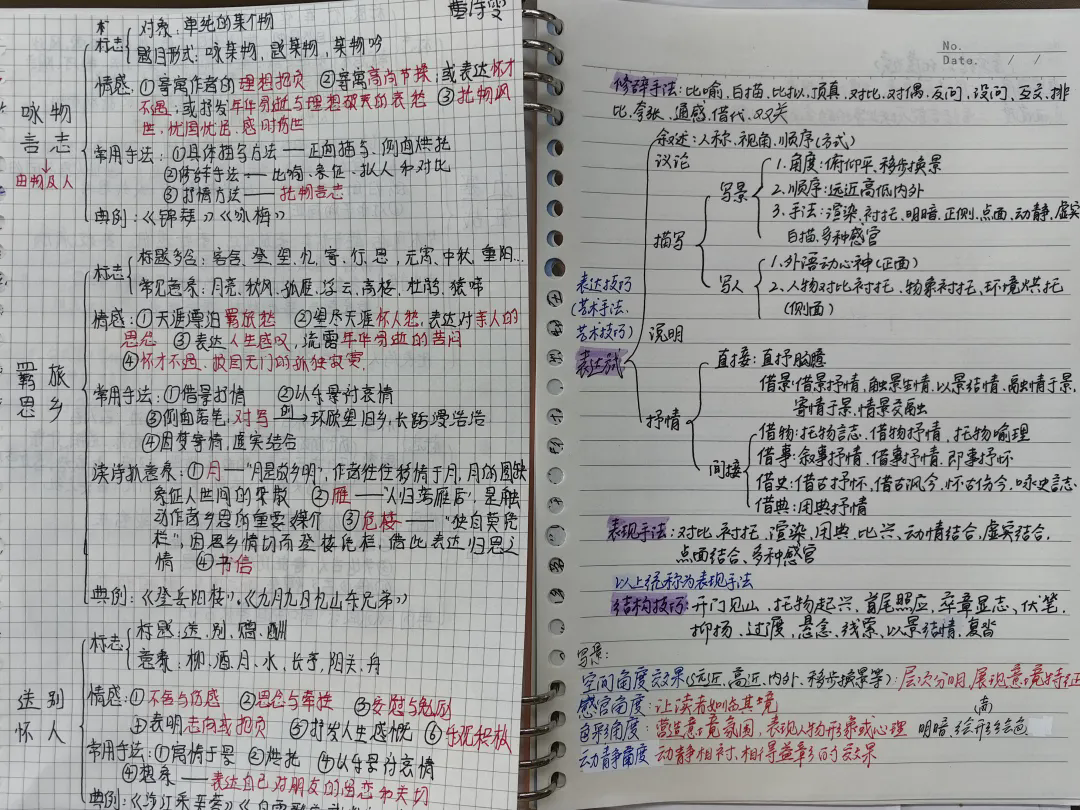 标志 对象：单纯的某个物
题目形式：咏某物，题某物，某物吟
咏物
言志
由物及人
情感：①寄寓作者的理想抱负 ②寄寓高尚节操；或表达怀才
不遇；或抒发年华易逝与理想破灭的哀愁 ③托物讽
世，忧国忧民，感时伤世
常用手法：①具体描写方法——正面描写、侧面烘托
②修辞手法——比喻、象征、拟人和对比
③抒情方法——托物言志
典例：《锦瑟》《咏梅》
羁旅
思乡
标志 标题多含：客舍、登、望、忆、寄、行、思，元宵、中秋、重阳…
常见意象：月亮、秋风、孤雁、浮云、高楼、杜鹃、猿啼
情感：①天涯漂泊羁旅愁 ②望尽天涯怀人愁，表达对亲人的
思念 ③表达人生感叹，流露年华易逝的苦闷
④怀才不遇、报国无门的孤独寂寞．
常用手法：①借景抒情 ②以乐景衬哀情
③侧面落笔，对写 例→环顾望旧乡，长路漫浩浩
④因梦寄情，虚实结合
读诗抓意象：①月—“月是故乡明”，作者往往移情于月，月的圆缺
象征人世间的聚散 ②雁—“人归落雁后”，是触
动作者乡思的重要媒介 ③危楼——“独自莫凭
栏”，因思乡情切而登楼凭栏，借此表达归思之
情 ④书信
典例：《登岳阳楼》、《九月九日忆山东兄弟》
送别
怀人
标志 标题：送、别、赠、酬
意象：柳、酒、月、水、长亭、阳关、舟
情感：①不舍与伤感 ②思念与牵挂 ③安慰与勉励
④表明志向或抱负 ⑤抒发人生感慨 ⑥乐观积极
常用手法：①寓情于景 ②烘托 ④以乐景衬哀情
④想象——表达自己对朋友的留恋和关切
No.
Date. / /
修辞手法：比喻、白描、比拟、顶真、对比、对偶、反问、设问、互文、排
比、夸张、通感、借代、双关
表达技巧
(艺术手法、
艺术技巧)
表达方式
叙述：人称、视角、顺序(方式)
议论
描写
写景 1.角度：俯仰平、移步换景
2.顺序：远近高低内外
3.手法：渲染、衬托、明暗、正侧、点面、动静、虚实
白描、多种感官
写人 1.外语动心神(正面)
2.人物对比衬托、物象衬托、环境烘托
(侧面)
说明
抒情
直接：直抒胸臆
间接
借景：借景抒情、触景生情、以景结情、融情于景、
寄情于景、情景交融
借物：托物言志、借物抒情、托物喻理
借事：叙事抒情、借事抒情、即事抒怀
借史：借古抒怀、借古讽今、怀古伤今、咏史言志
借典：用典抒情
表现手法：对比、衬托、渲染、用典、比兴、动情结合、虚实结合、
点面结合、多种感官
以上统称为表现手法
结构技巧：开门见山、托物起兴、首尾照应、卒章显志、伏笔、
抑扬、过渡、悬念、线索、以景结情、复沓
写景：
空间角度效果(远近、高近、内外、移步换景等)：层次分明，展现意境特征
感官角度：让读者如临其境 (高)
色彩角度：营造意境氛围，表现人物形象或心理 明暗：绘形绘色
动静角度 动静相衬、相得益彰的效果